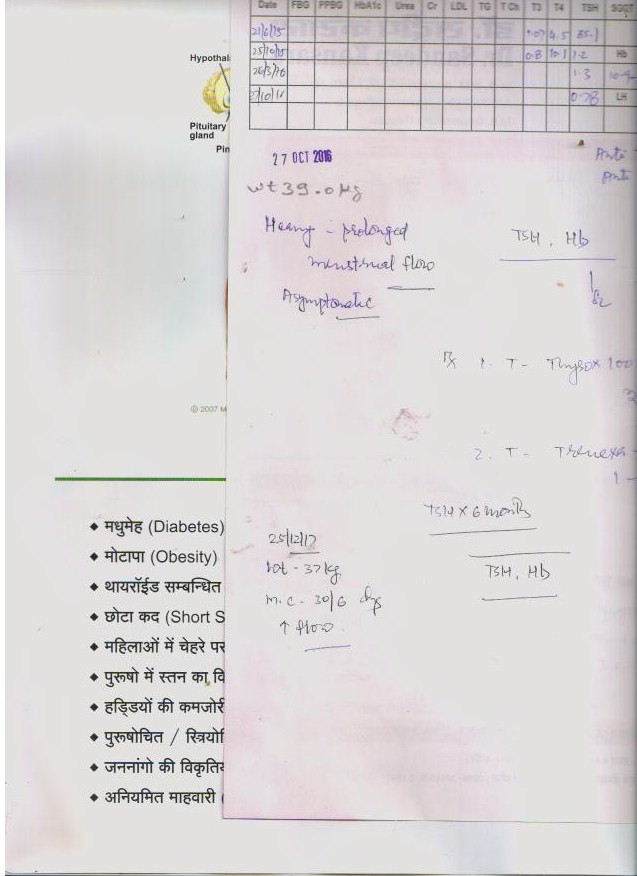 Date FBG PPBG HbA1c Urea Cr LDL TG T Ch T3 T4 TSH SGOT
21/6/15 1.07 4.5 35.1
25/10/15 0.8 10.1 1.2 Hb
26/3/16 1.3
27/10/16 0.78 LH
Hypothal
Pituitary
gland
Pin
27 OCT 2016
wt 39.0 kg
Anti
Anti
Heavy - prolonged
menstrual flow
TSH, Hb
Asymptomatic
Rx 1. T - Thyrox 100
© 2007 M
2. T - Trenexa
1 -
TSH x 6 months
25/12/17
wt - 37 kg
TSH, Hb
M.C - 30/6 dys
↑ flow.
◆ मधुमेह (Diabetes)
◆ मोटापा (Obesity)
◆ थायरॉईड सम्बन्धित
◆ छोटा कद (Short S
◆ महिलाओं में चेहरे पर
◆ पुरूषो में स्तन का वि
◆ हड्डियों की कमजोरी
◆ पुरूषोचित / स्त्रियोि
◆ जननांगो की विकृति
◆ अनियमित माहवारी (